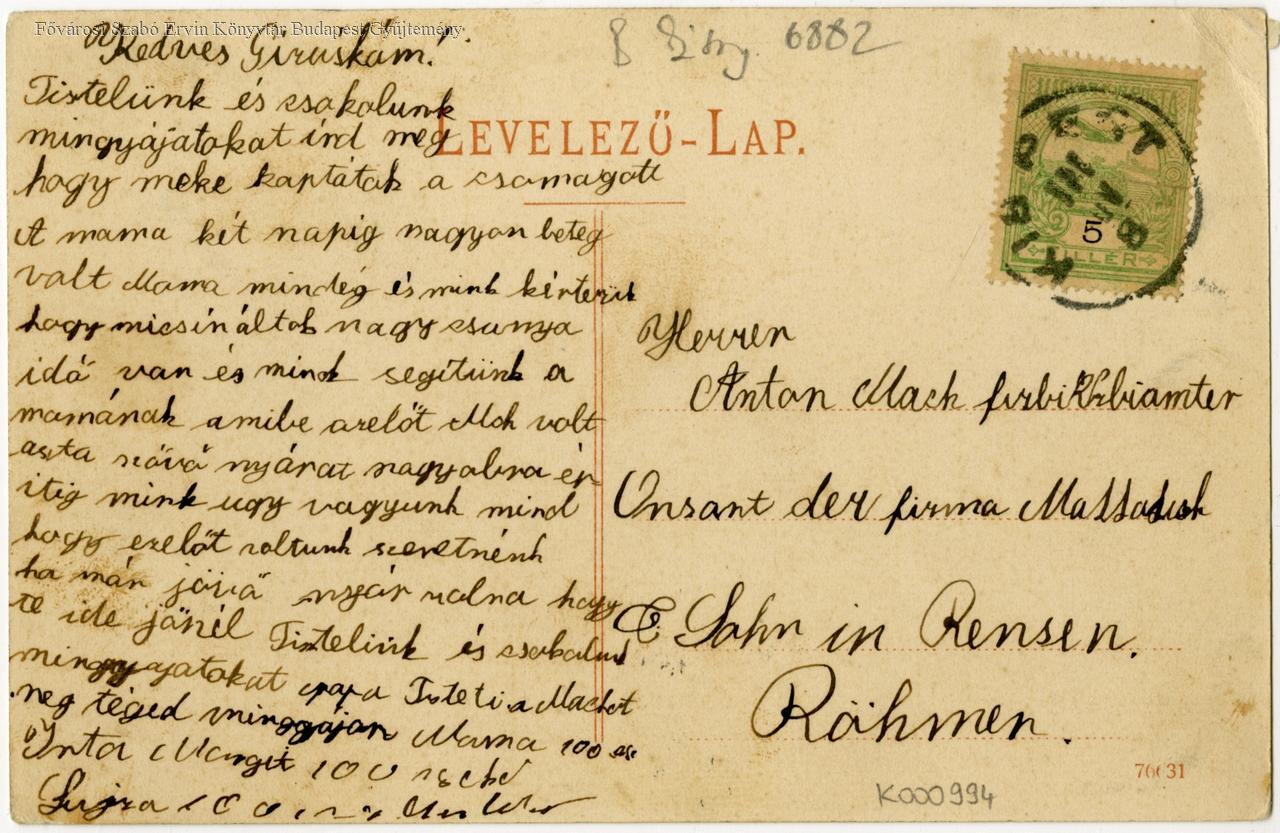 Fővárosi Szabó Ervin Könyvtár Budapest Gyűjtemény
6882
Kedves Giruskám!
Tistelünk és csokolunk
mingyájatokat ird meg
hogy meke kaptátok a csomagott
A mama két napig nagyon beteg
volt Mama mindég és mink kérterük
hogy micsináltok nagy csunya
idő van és mink segitünk a
mamának amibe azelőt Moh volt
aszta nyárat nagyobra ér-
itig mink ugy vagyunk mind
hogy ezelőt voltunk szeretnénk
ha már jövő nyár volna hogy
te ide jönél Tistelünk és csokolunk
mingyajatokat papa Tisteti a Machot
meg téged minggáján Mama 100 es
Irta Margit 100
Lujza 100
LEVELEZŐ-LAP.
KISPEST
5
FILLÉR
Herren
Anton Mach
Onsant der firma
E Sohn in Rensen.
Röhmen.
76031
K000994